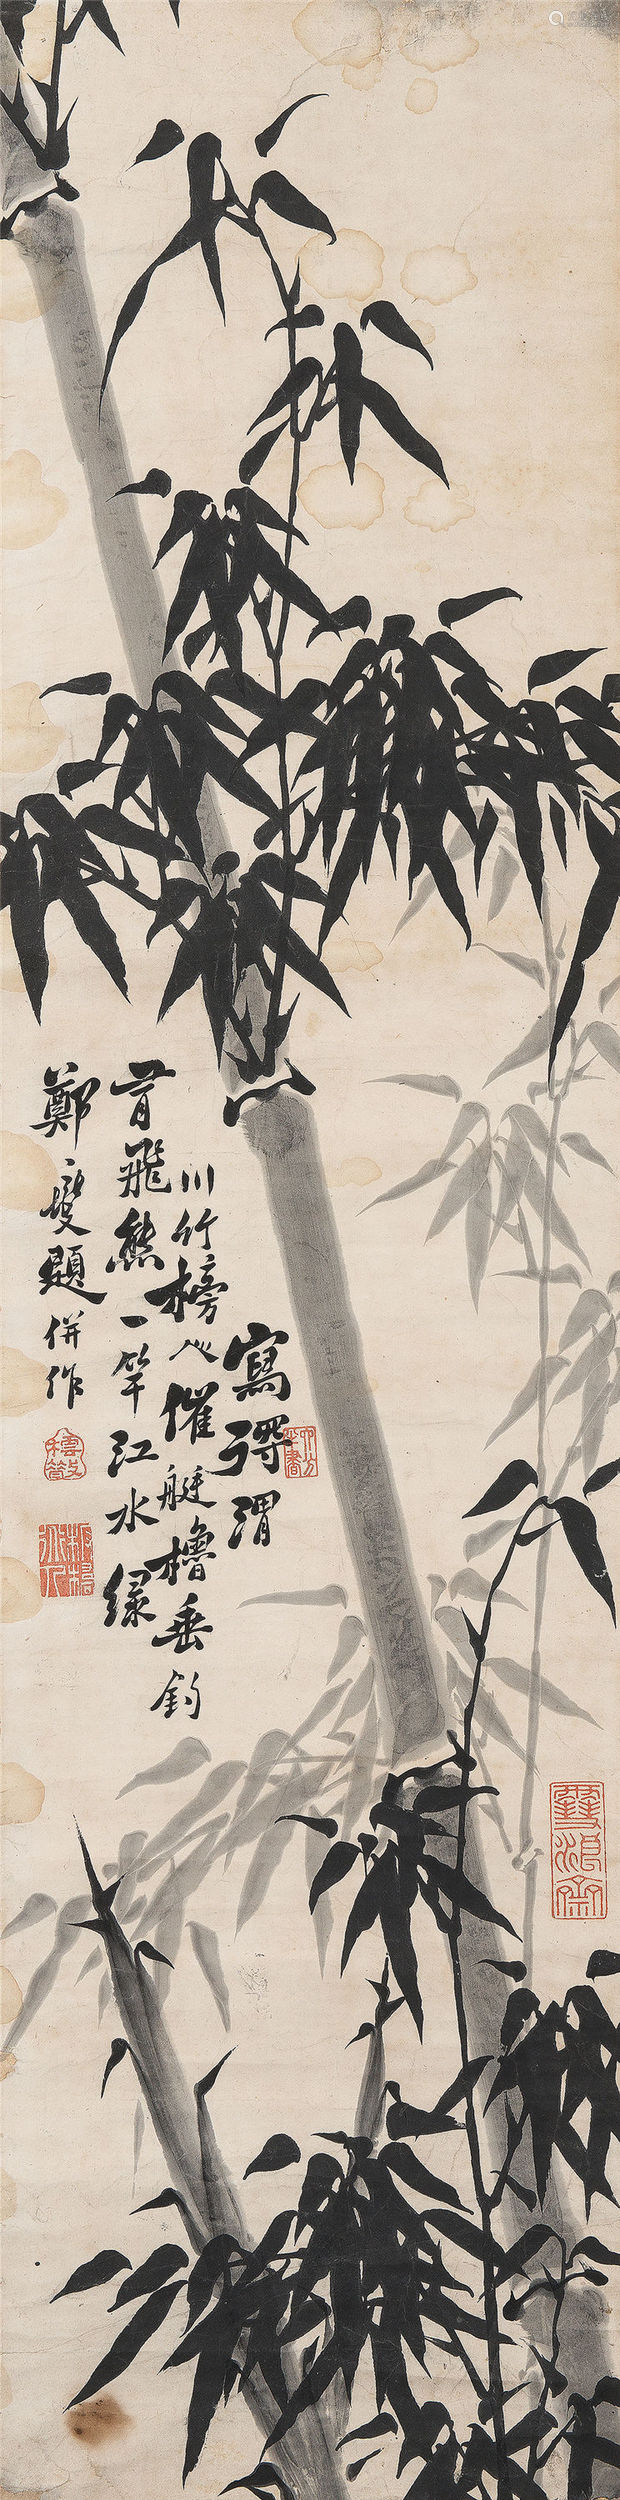 寫得渭
川竹榜人催艇櫓垂釣
昔飛熊一竿江水綠
鄭燮題併作